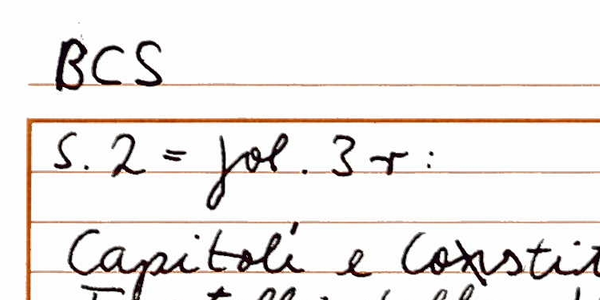 BCS
S. 2 = fol. 3 r :
Capitoli e Constit